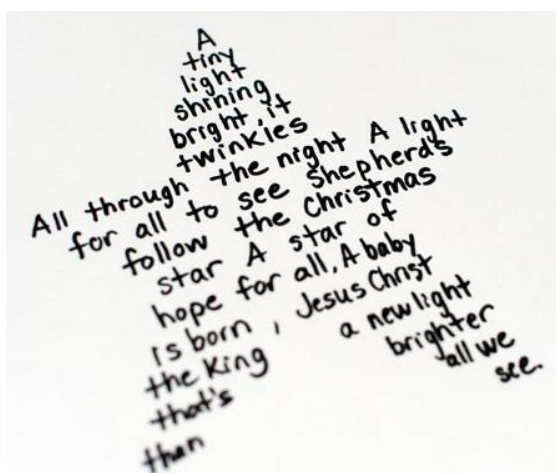 A
tiny
light
shining
bright, it
twinkles
All through the night A light
for all to see Shepherds
follow the Christmas
star A star of
hope for all, A baby
is born, Jesus Christ
the King a new light
that's brighter
than all we
see.